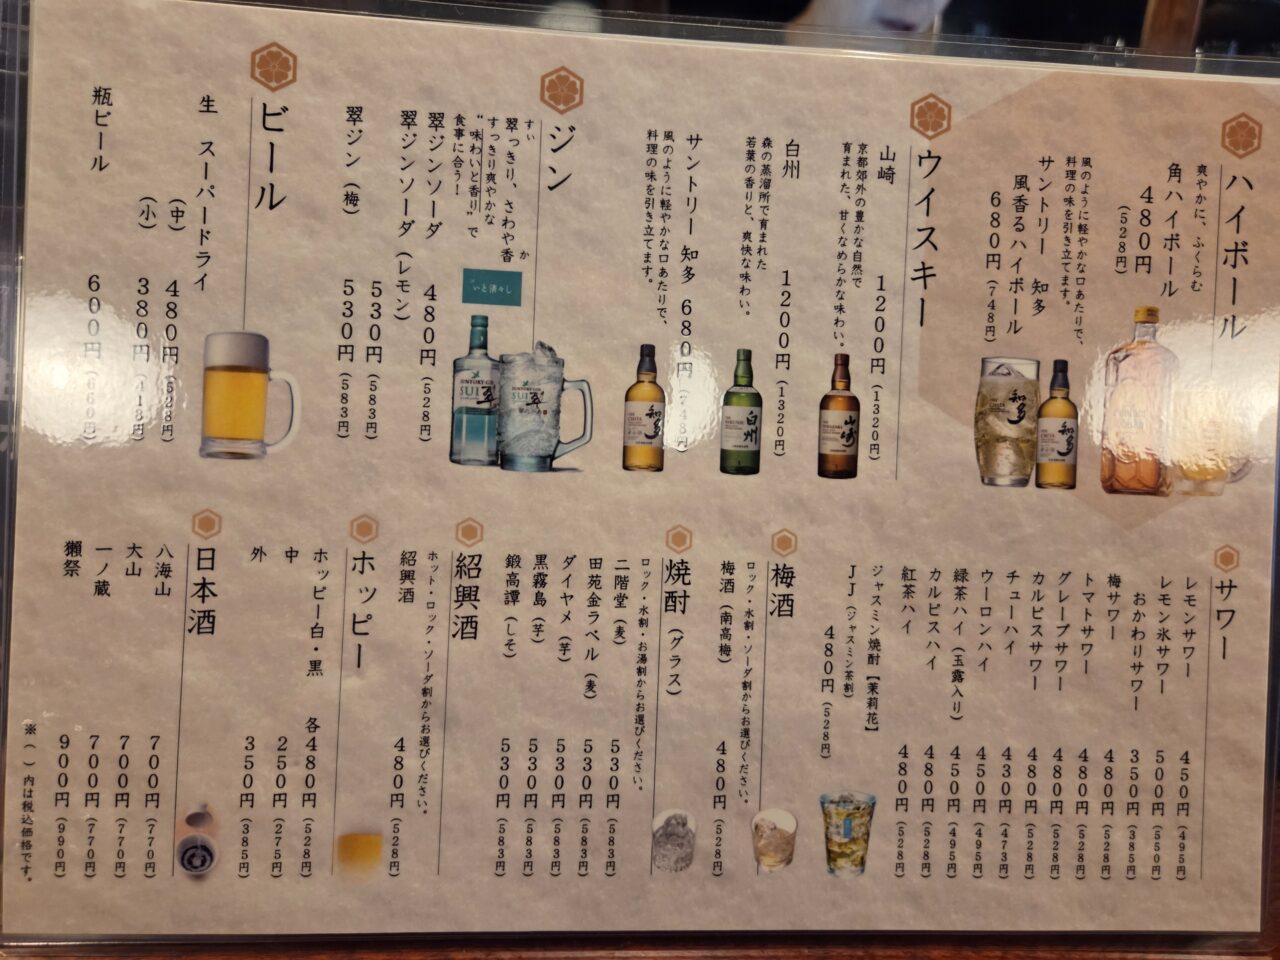 ハイボール
爽やかに、ふくらむ
角ハイボール
480円(528円)
風のように軽やかな口あたりで、
料理の味を引き立てます。
サントリー 知多
風香るハイボール
680円(748円)
ウイスキー
山崎 1200円(1320円)
京都郊外の豊かな自然で
育まれた、甘くなめらかな味わい。
白州 1200円(1320円)
森の蒸溜所で育まれた
若葉の香りと、爽快な味わい。
サントリー 知多 680円(748円)
風のように軽やかな口あたりで、
料理の味を引き立てます。
知多
知多
白州
山崎
ジン
すい
翠っきり、さわや香
か
すっきり爽やかな
“味わいと香り”で
食事に合う!
翠ジンソーダ 480円(528円)
翠ジンソーダ(レモン)
530円(583円)
翠ジン(梅) 530円(583円)
いと清々し
SUNTORY GIN
SUI
翠
ビール
生 スーパードライ
(中) 480円(528円)
(小) 380円(418円)
瓶ビール 600円(660円)
サワー
レモンサワー 450円(495円)
レモン氷サワー 500円(550円)
おかわりサワー 350円(385円)
梅サワー 480円(528円)
トマトサワー 480円(528円)
グレープサワー 480円(528円)
カルピスサワー 480円(528円)
チューハイ 430円(473円)
ウーロンハイ 450円(495円)
緑茶ハイ(玉露入り) 450円(495円)
カルピスハイ 480円(528円)
紅茶ハイ 480円(528円)
ジャスミン焼酎【茉莉花】
JJ(ジャスミン茶割)
480円(528円)
梅酒
ロック・水割・ソーダ割からお選びください。
梅酒(南高梅) 480円(528円)
焼酎(グラス)
ロック・水割・お湯割からお選びください。
二階堂(麦) 530円(583円)
田苑金ラベル(麦) 530円(583円)
ダイヤメ(芋) 530円(583円)
黒霧島(芋) 530円(583円)
鍛高譚(しそ) 530円(583円)
紹興酒
ホット・ロック・ソーダ割からお選びください。
紹興酒 480円(528円)
ホッピー
ホッピー白・黒 各480円(528円)
中 250円(275円)
外 350円(385円)
日本酒
八海山 700円(770円)
大山 700円(770円)
一ノ蔵 700円(770円)
獺祭 900円(990円)
※( )内は税込価格です。